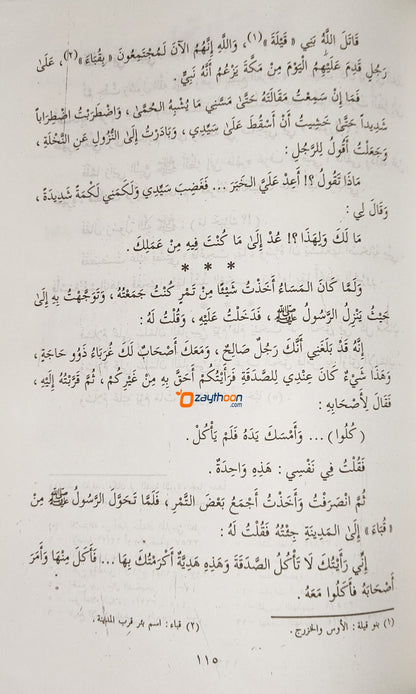 قَاتَلَ اللَّهُ بَنِي « قَيْلَةَ »(١) ، وَاللَّهِ إِنَّهُمُ الآنَ لَمُجْتَمِعُونَ « بِقُبَاءَ »(٢) ، عَلَىٰ
رَجُلٍ قَدِمَ عَلَيْهِمُ الْيَوْمَ مِنْ مَكَّةَ يَزْعُمُ أَنَّهُ نَبِيٌّ .
فَمَا إِنْ سَمِعْتُ مَقَالَتَهُ حَتَّىٰ مَسَّنِي مَا يُشْبِهُ الْحُمَّىٰ ، وَاضْطَرَبْتُ اضْطِرَاباً
شَدِيداً حَتَّىٰ خَشِيتُ أَنْ أَسْقُطَ عَلَىٰ سَيِّدِي ، وَبَادَرْتُ إِلَى النُّزُولِ عَنِ النَّخْلَةِ ،
وَجَعَلْتُ أَقُولُ لِلرَّجُلِ :
مَاذَا تَقُولُ ؟! أَعِدْ عَلَيَّ الْخَبَرَ ... فَغَضِبَ سَيِّدِي وَلَكَمَنِي لَكْمَةً شَدِيدَةً ،
وَقَالَ لِي :
مَا لَكَ وَلِهَذَا ؟! عُدْ إِلَىٰ مَا كُنْتَ فِيهِ مِنْ عَمَلِكَ .
* * *
وَلَمَّا كَانَ الْمَسَاءُ أَخَذْتُ شَيْئاً مِنْ تَمْرٍ كُنْتُ جَمَعْتُهُ ، وَتَوَجَّهْتُ بِهِ إِلَىٰ
حَيْثُ يَنْزِلُ الرَّسُولُ ﷺ ، فَدَخَلْتُ عَلَيْهِ ، وَقُلْتُ لَهُ :
إِنَّهُ قَدْ بَلَغَنِي أَنَّكَ رَجُلٌ صَالِحٌ ، وَمَعَكَ أَصْحَابٌ لَكَ غُرَبَاءُ ذَوُو حَاجَةٍ ،
وَهَذَا شَيْءٌ كَانَ عِنْدِي لِلصَّدَقَةِ فَرَأَيْتُكُمْ أَحَقَّ بِهِ مِنْ غَيْرِكُمْ ، ثُمَّ قَرَّبْتُهُ إِلَيْهِ ،
فَقَالَ لِأَصْحَابِهِ :
(كُلُوا) ... وَأَمْسَكَ يَدَهُ فَلَمْ يَأْكُلْ .
zaythoon.com
فَقُلْتُ فِي نَفْسِي : هَذِهِ وَاحِدَةٌ .
ثُمَّ انْصَرَفْتُ وَأَخَذْتُ أَجْمَعُ بَعْضَ التَّمْرِ ، فَلَمَّا تَحَوَّلَ الرَّسُولُ ﷺ مِنْ
« قُبَاءَ » إِلَى الْمَدِينَةِ جِئْتُهُ فَقُلْتُ لَهُ :
إِنِّي رَأَيْتُكَ لَا تَأْكُلُ الصَّدَقَةَ وَهَذِهِ هَدِيَّةٌ أَكْرَمْتُكَ بِهَا ... فَأَكَلَ مِنْهَا وَأَمَرَ
أَصْحَابَهُ فَأَكَلُوا مَعَهُ .
(١) بنو قيلة : الأوس والخزرج .
(٢) قباء : اسم بئر قرب المدينة .
١١٥